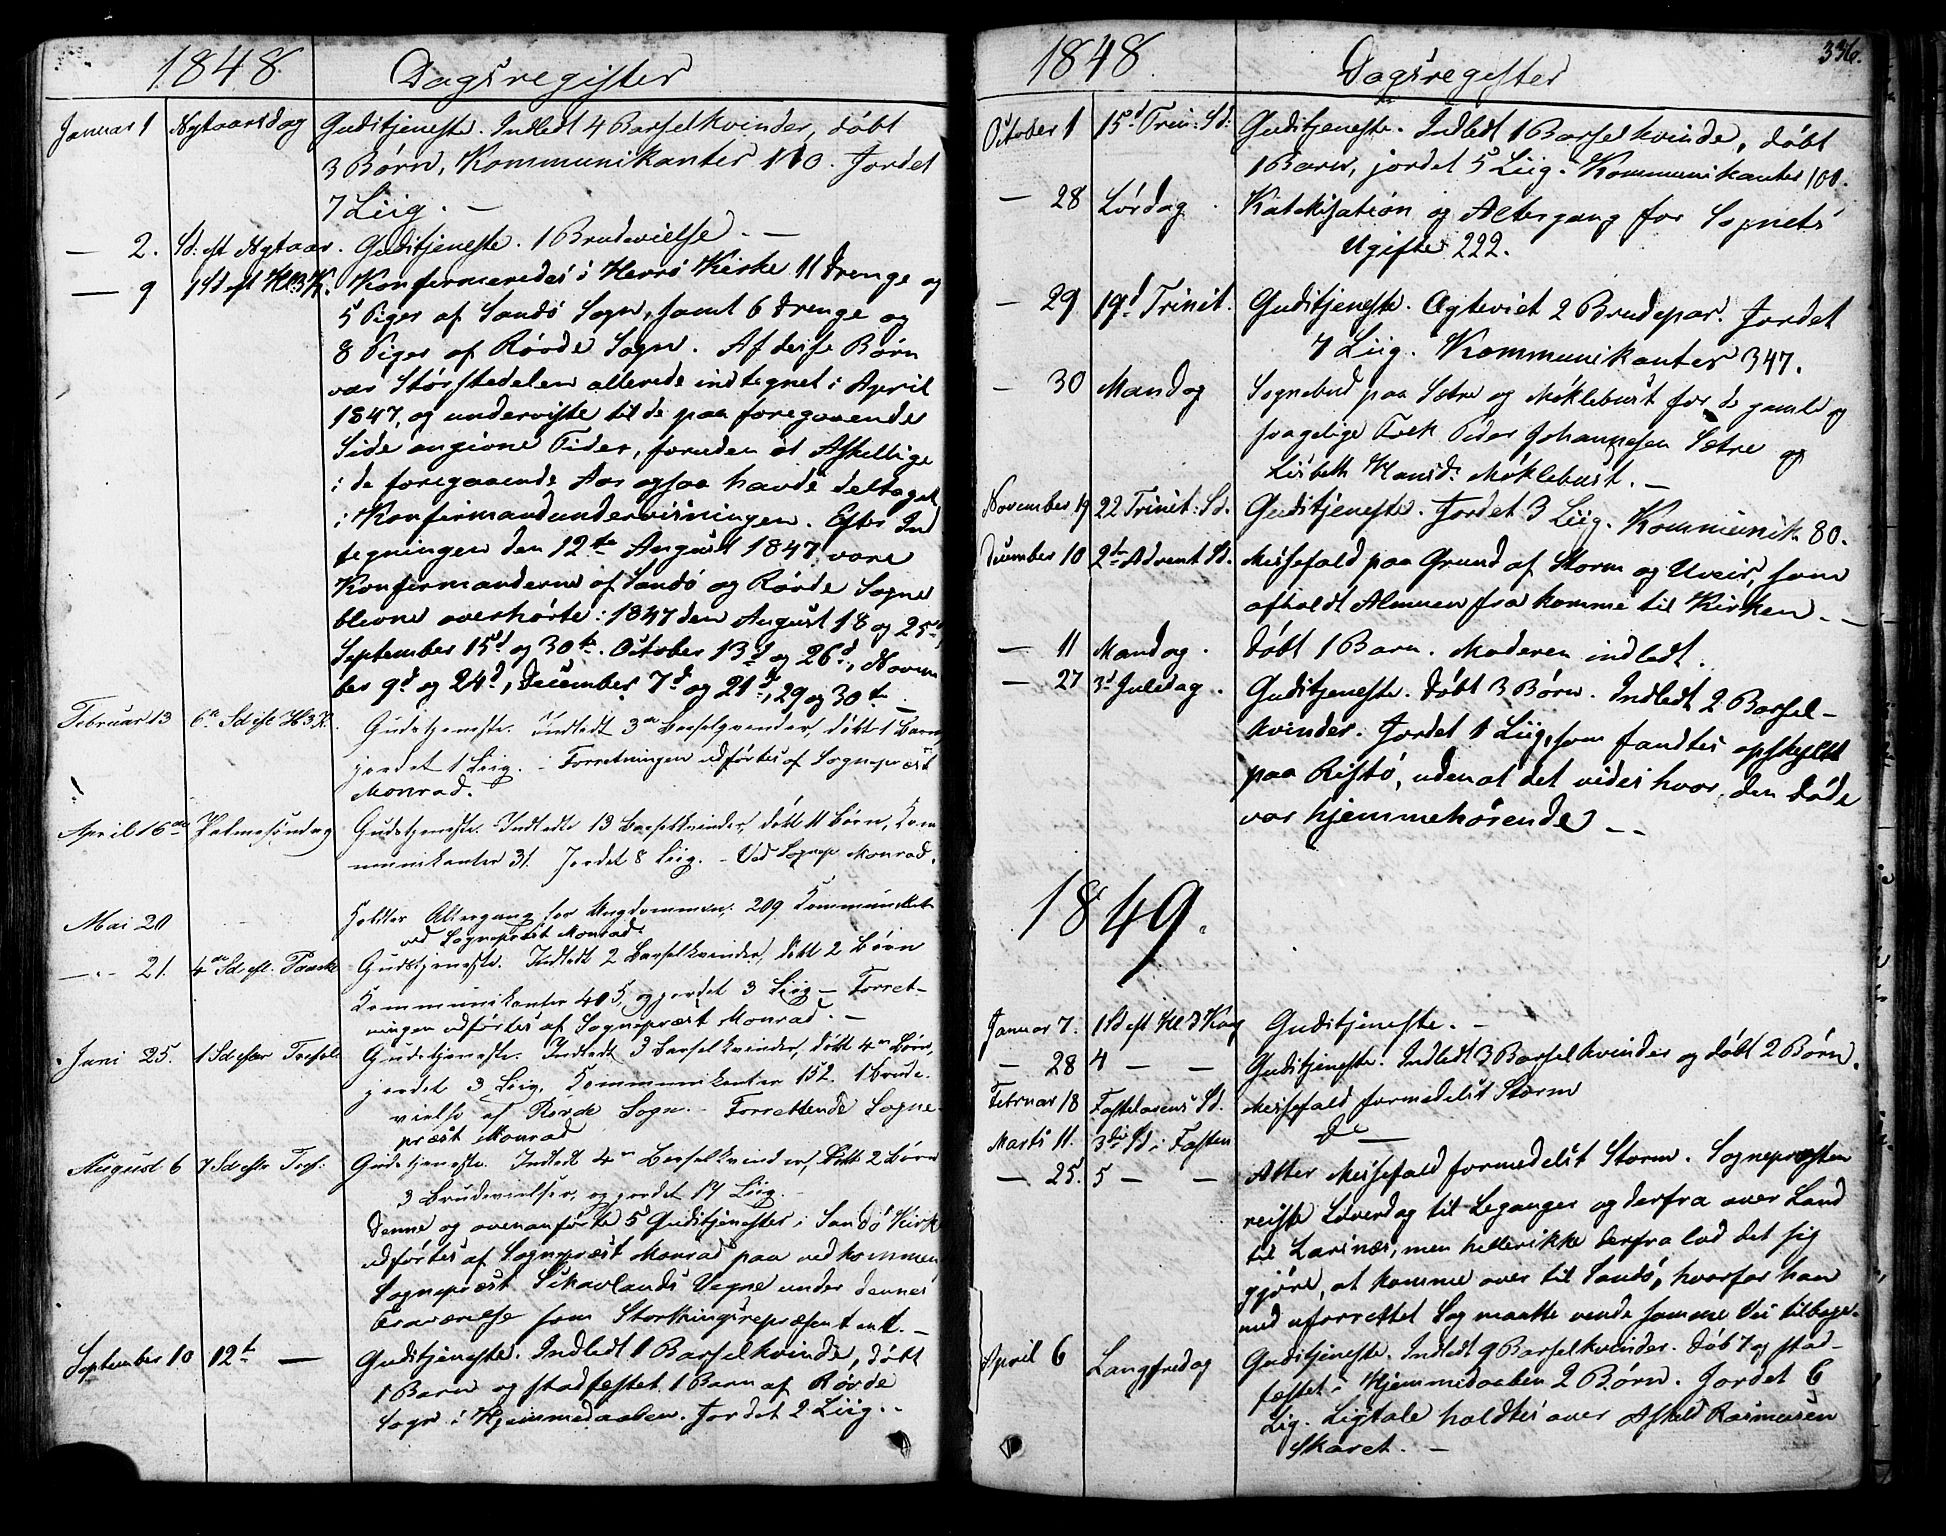 1848. Dagsregister
Januar 1 Nytaarsdag Gudstjeneste. Indledt 4 Barselkvinder, døbt
3 Børn, Kommunikanter 110. Jordet
7 Liig. —
— 2. Sd. eft Nytaar. Gudstjeneste. 1 Brudevielse. —
— 9 1 Sd eft Hl. 3 K. Konfirmeredes i Herrø Kirke 11 Drenge og
5 Piger af Sandø Sogn, samt 6 Drenge og
8 Piger af Røvde Sogn. Af disse Børn
var Størstedelen allerede indtegnet i April
1847, og underviste til de paa foregaaende
Side angivne Tider, foruden at Adskillige
i de foregaaende Aar ogsaa havde deltaget
i Konfirmandundervisningen. Efter Ind
tegningen den 12te August 1847 vare
Konfirmanderne af Sandø og Røvde Sogne
blevne overhørte: 1847 den August 18 og 25d,
September 15d og 30te. October 13d og 26d, Novem
ber 9d og 24d, December 7d og 21d, 29 og 30te —
Februar 13 6te Sd eft H. 3 K. Gudstjeneste. Indledt 3de Barselqvinder, døbt 1 Barn,
jordet 1 Liig. — Forretningen udførtes af Sognepræst
Monrad.
April 16de Palmesøndag Gudstjeneste. Indledte 13 Barselkvinder, døbt 11 Børn, Kom
munikanter 31. Jordet 8 Liig. — Ved Sognep Monrad.
Mai 20 Holdtes Altergang for Ungdommen; 209 Kommunikat
ved Sognepræst Monrad.
— 21. 4de Sd eft. Paaske Gudstjeneste. Indledt 2 Barselkvinder, døbt 2 Børn
Kommunikanter 405, og jordet 3 Liig — Forret-
ningen udførtes af Sognepræst Monrad. —
Juni 25. 1 Sd efter Trefold Gudstjeneste. Indledt 3 Barselkvinder, døbt 4re Børn,
jordet 3 Liig, Kommunikanter 152. 1 Brude-
vielse af Røvde Sogn. — Forrettende Sogne-
præst Monrad
August 6 7 Sd efter Tref. Gudstjeneste. Indledt 4re Barselkvinder, døbt 2 Børn
3 Brudevielser, og jordet 17 Liig. —
Denne og ovenanførte 5 Gudstjenester i Sandø Kirke
udførtes af Sognepræst Monrad paa vedkommen
Sognepræst Sikavlands Vegne under dennes
Fraværelse som Storthingsrepræsentant. —
September 10 12te — Gudstjeneste. Indledt 1 Barselkvinde, døbt
1 Barn og stadfæstet 1 Barn af Røvde
Sogn i Hjemmedaaben. Jordet 2 Liig. —
336.
1848. Dagsregister
October 1 15d Trin: Sd: Gudstjeneste. Indledt 1 Barselkvinde, døbt
1 Barn, jordet 5 Liig. Kommunikanter 101.
— 28 Lørdag. Katekisation og Altergang for Sognets
Ugifte 222.
— 29 19d Trinit. Gudstjeneste. Ægteviet 2 Brudepar. Jordet
7 Liig. Kommunikanter 347.
— 30 Mandag Sognebud paa Sætre og Møklebust for de gamle og
svagelige Folk Peder Johannesen Sætre og
Lisbeth Hansdr Møklebust. —
November 19 22 Trinit: Sd. Gudstjeneste. Jordet 3 Liig. Kommunik. 80.
December 10 2de Advent Sd. Messefald paa Grund af Storm og Uveir, som
afholdt Almuen fra komme til Kirken. —
— 11 Mandag. Døbt 1 Barn. Moderen indledt.
— 27 3d Juledag. Gudstjeneste. Døbt 3 Børn. Indledt 2 Barsel-
kvinder. Jordet 1 Liig, som fandtes opskyllet
paa Ristø, uden at det vides hvor den Døde
var hjemmehørende. —
1849.
Januar 7. 1 Sd eft Hl 3 Kong Gudstjeneste. —
— 28 4 — — Gudstjeneste. Indledt 3 Barselkvinder og døbt 2 Børn.
Februar 18 Fastelavens Sd. Messefald formedelst Storm
Marts 11. 3die Sd i Fasten Do —
— 25. 5 — — Atter Messefald formedelst Storm. Sognepræsten
reiste Løverdag til Leganger og derfra over Land
til Larsnæs, men heller ikke derfra lod det sig
gjøre, at komme over til Sandø, hvorfor han
med uforrettet Sag maatte vende samme Vei tilbage.
April 6 Langfredag Gudstjeneste. Indledt 9 Barselkvinder. Døb 7 og stad-
fæstet i Hjemmedaaben 2 Børn. Jordet 6
Lig. Ligtale holdtes over Askild Rasmusen
Skaret. —